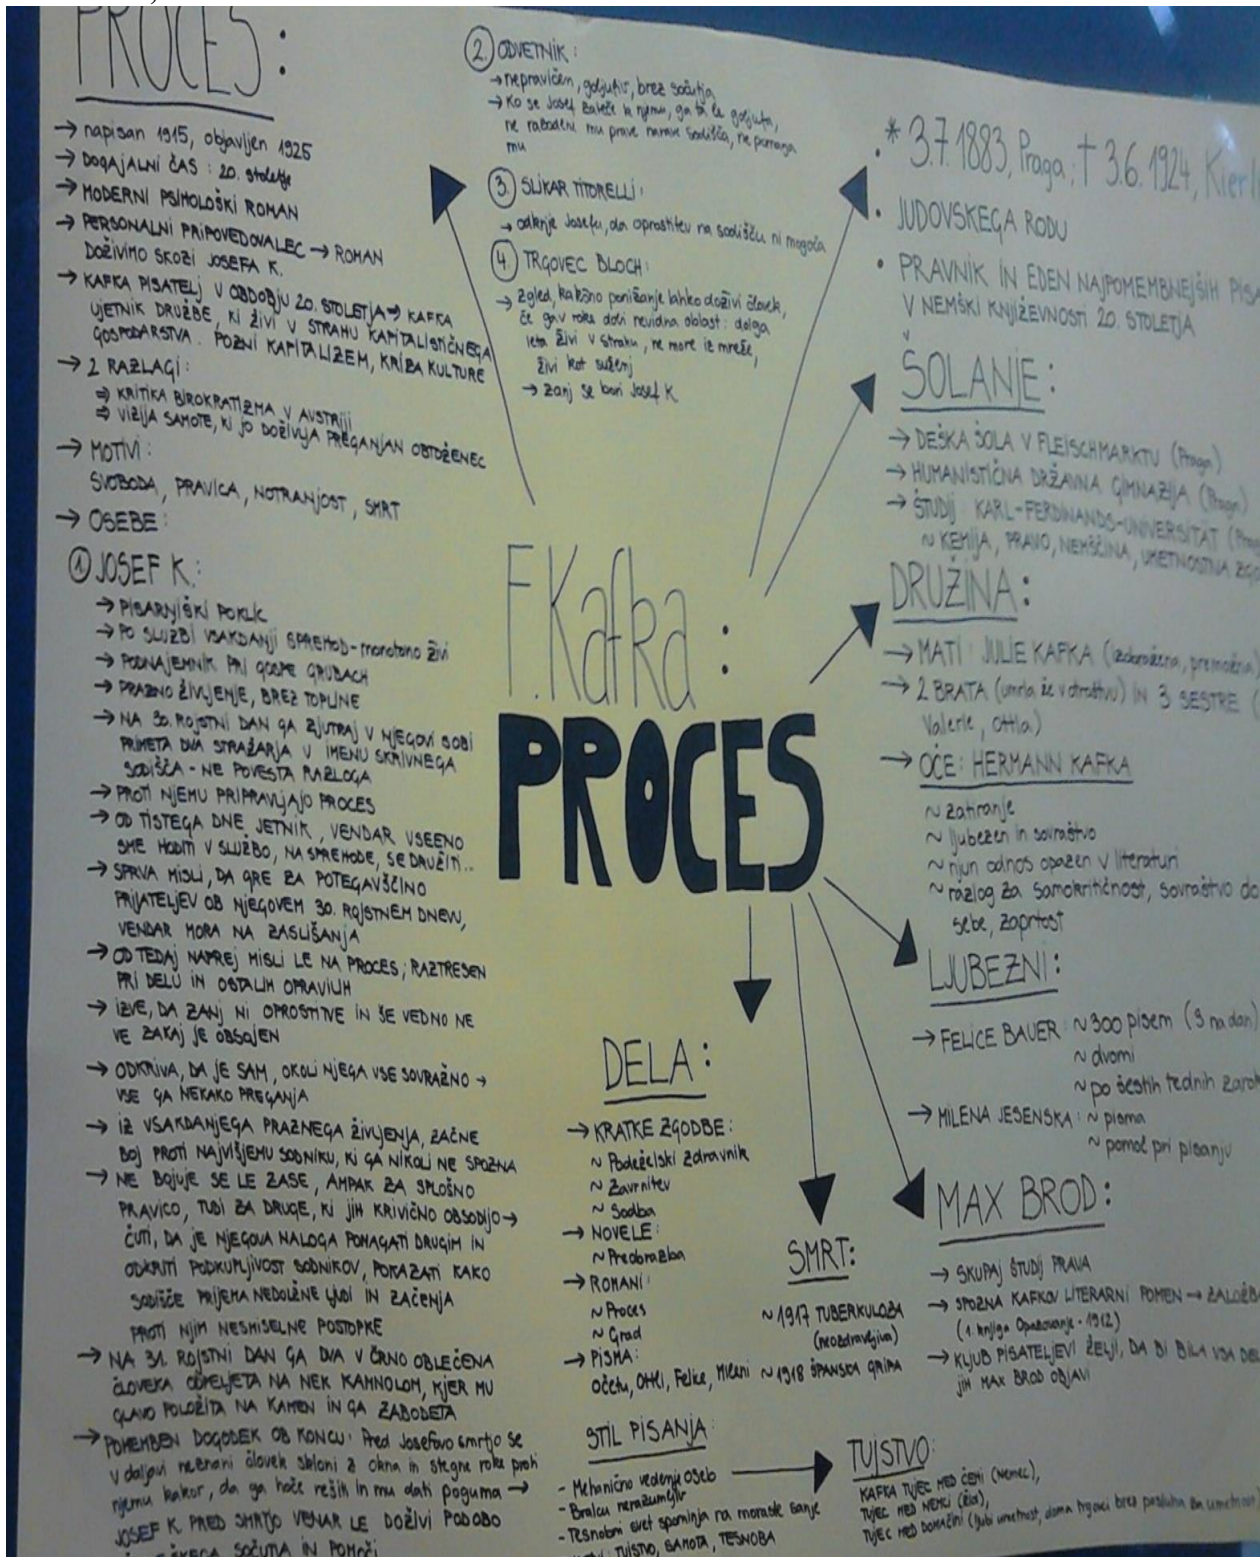 PROCES:
→ napisan 1915, objavljen 1925
→ DOGAJALNI ČAS: 20. stoletje
→ MODERNI PSIHOLOŠKI ROMAN
→ PERSONALNI PRIPOVEDOVALEC → ROMAN
DOŽIVIMO SKOZI JOSEFA K.
→ KAFKA PISATELJ V OBDOBJU 20. STOLETJA → KAFKA
UJETNIK DRUŽBE, KI ŽIVI V STRAHU KAPITALISTIČNEGA
GOSPODARSTVA. POZNI KAPITALIZEM, KRIZA KULTURE
→ 2 RAZLAGI:
⇒ KRITIKA BIROKRATIZMA V AVSTRIJI
⇒ VIZIJA SAMOTE, KI JO DOŽIVLJA PREGANJAN OBTOŽENEC
→ MOTIVI:
SVOBODA, PRAVICA, NOTRANJOST, SMRT
→ OSEBE:
① JOSEF K.:
→ PISARNIŠKI POKLIC
→ PO SLUŽBI VSAKDANJI SPREHOD - monotono živi
→ PODNAJEMNIK PRI GOSPE GRUBACH
→ PRAZNO ŽIVLJENJE, BREZ TOPLINE
→ NA 30. ROJSTNI DAN GA ZJUTRAJ V NJEGOVI SOBI
PRIMETA DVA STRAŽARJA V IMENU SKRIVNEGA
SODIŠČA - NE POVESTA RAZLOGA
→ PROTI NJEMU PRIPRAVLJAJO PROCES
→ OD TISTEGA DNE JETNIK, VENDAR VSEENO
SME HODITI V SLUŽBO, NA SPREHODE, SE DRUŽITI...
→ SPRVA MISLI, DA GRE ZA POTEGAVŠČINO
PRIJATELJEV OB NJEGOVEM 30. ROJSTNEM DNEVU,
VENDAR MORA NA ZASLIŠANJA
→ OD TEDAJ NAPREJ MISLI LE NA PROCES; RAZTRESEN
PRI DELU IN OSTALIH OPRAVILIH
→ IZVE, DA ZANJ NI OPROSTITVE IN ŠE VEDNO NE
VE ZAKAJ JE OBSOJEN
→ ODKRIVA, DA JE SAM, OKOLI NJEGA VSE SOVRAŽNO →
VSE GA NEKAKO PREGANJA
→ IZ VSAKDANJEGA PRAZNEGA ŽIVLJENJA, ZAČNE
BOJ PROTI NAJVIŠJEMU SODNIKU, KI GA NIKOLI NE SPOZNA
→ NE BOJUJE SE LE ZASE, AMPAK ZA SPLOŠNO
PRAVICO, TUDI ZA DRUGE, KI JIH KRIVIČNO OBSODIJO →
ČUTI, DA JE NJEGOVA NALOGA POMAGATI DRUGIM IN
ODKRITI PODKUPLJIVOST SODNIKOV, POKAZATI KAKO
SODIŠČE PRIJEMA NEDOLŽNE LJUDI IN ZAČENJA
PROTI NJIM NESMISELNE POSTOPKE
→ NA 31. ROJSTNI DAN GA DVA V ČRNO OBLEČENA
ČLOVEKA ODPELJETA NA NEK KAMNOLOM, KJER MU
GLAVO POLOŽITA NA KAMEN IN GA ZABODETA
→ POMEMBEN DOGODEK OB KONCU: Pred Josefovo smrtjo se
v daljavi neznani človek skloni z okna in stegne roke proti
njemu kakor, da ga hoče rešiti in mu dati poguma →
JOSEF K. PRED SMRTJO VENAR LE DOŽIVI PODOBO
SOČUTJA IN POMOČI
② ODVETNIK:
→ nepravičen, goljufiv, brez sočutja
→ Ko se Josef zateče k njemu, ga ta le goljufa,
ne razodene mu prave narave sodišča, ne pomaga
mu
③ SLIKAR TITORELLI:
→ odkrije Josefu, da oprostitev na sodišču ni mogoča
④ TRGOVEC BLOCH:
→ zgled, kakšno ponižanje lahko doživi človek,
če ga v roke dobi nevidna oblast: dolga
leta živi v strahu, ne more iz mreže,
živi kot suženj
→ zanj se bori Josef K.
F. Kafka:
PROCES
* 3.7.1883, Praga; † 3.6.1924,
• JUDOVSKEGA RODU
• PRAVNIK IN EDEN NAJPOMEMBNEJŠIH
V NEMŠKI KNJIŽEVNOSTI 20. STOLETJA
ŠOLANJE:
→ DEŠKA ŠOLA V FLEISCHMARKTU (Praga)
→ HUMANISTIČNA DRŽAVNA GIMNAZIJA (Praga)
→ ŠTUDIJ KARL-FERDINANDS-UNIVERSITÄT
~ KEMIJA, PRAVO, NEMŠČINA, UMETNOSTNA
DRUŽINA:
→ MATI: JULIE KAFKA (izobražena, premožna)
→ 2 BRATA (umrla že v otroštvu) IN 3 SESTRE (
Valerie, Ottla)
→ OČE: HERMANN KAFKA
~ zatiranje
~ ljubezen in sovraštvo
~ njun odnos opazen v literaturi
~ razlog za samokritičnost, sovraštvo do
sebe, zaprtost
LJUBEZNI:
→ FELICE BAUER: ~ 300 pisem (3 na dan)
~ dvomi
~ po šestih tednih
→ MILENA JESENSKA: ~ pisma
~ pomoč pri pisanju
MAX BROD:
→ SKUPAJ ŠTUDIJ PRAVA
→ SPOZNA KAFKOV LITERARNI POMEN → ZALOŽBA
(1. knjiga Opazovanje - 1912)
→ KLJUB PISATELJEVI ŽELJI, DA BI BILA VSA
JIH MAX BROD OBJAVI
DELA:
→ KRATKE ZGODBE:
~ Podeželski zdravnik
~ Zavrnitev
~ Sodba
→ NOVELE:
~ Preobrazba
→ ROMANI:
~ Proces
~ Grad
→ PISMA:
Očetu, Ottli, Felice, Mileni
SMRT:
~ 1917 TUBERKULOZA
(neozdravljiva)
~ 1918 ŠPANSKA GRIPA
STIL PISANJA:
- Mehanično vedenje oseb
- Bralcu nerazumljiv
- Tesnobni svet spominja na moraste sanje
TUJSTVO, SAMOTA, TESNOBA
TUJSTVO:
KAFKA TUJEC MED ČEHI (Nemec),
TUJEC MED NEMCI (Žid),
TUJEC MED DOMAČINI (ljubi umetnost, doma trgovci brez posluha za umetnost)